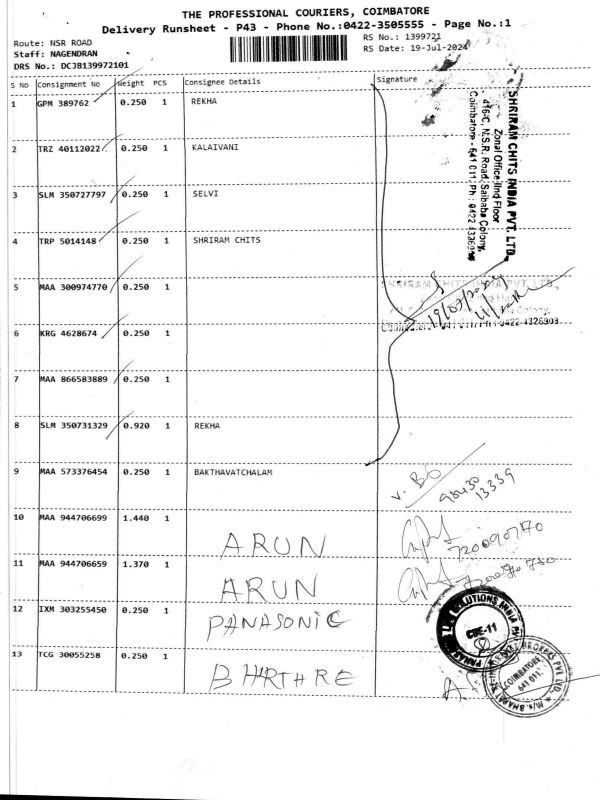 THE PROFESSIONAL COURIERS, COIMBATORE
Delivery Runsheet - P43 - Phone No.:0422-3505555 - Page No.:1
Route: NSR ROAD
Staff: NAGENDRAN
DRS No.: DCJB139972101
RS No.: 1399721
RS Date: 19-Jul-2024
S No Consignment No Weight PCS Consignee Details Signature
1 GPM 389762 0.250 1 REKHA
2 TRZ 40112022 0.250 1 KALAIVANI
3 SLM 350727797 0.250 1 SELVI
4 TRP 5014148 0.250 1 SHRIRAM CHITS
5 MAA 300974770 0.250 1
6 KRG 4628674 0.250 1
7 MAA 866583889 0.250 1
8 SLM 350731329 0.920 1 REKHA
9 MAA 573376454 0.250 1 BAKTHAVATCHALAM
10 MAA 944706699 1.440 1 ARUN
11 MAA 944706659 1.370 1 ARUN
12 IXM 303255450 0.250 1 PANASONIC
13 TCG 30055258 0.250 1
SHRIRAM CHITS INDIA PVT. LTD.
Zonal Office IInd Floor
416-C, N.S.R. Road, Saibaba Colony,
Coimbatore - 641 011. Ph : 0422 4326908
SHRIRAM CHITS INDIA PVT. LTD.
Colony,
0422-4326908
19/07/2024
98430
13339
CBE-11
COIMBATORE
641 011.